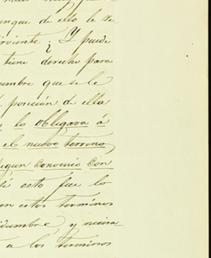 unque de ello le de
rviente? Y puede
tiene derecho para
umbre que se le
posicion de ella
lo obligara á
el nuevo terreno,
egun convenio con
esto fue lo
en estos terminos
idumbre y
a los terminos